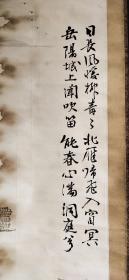 日長風暖柳青々北雁歸飛入窅冥
岳陽城上聞吹笛能春心滿洞庭兮